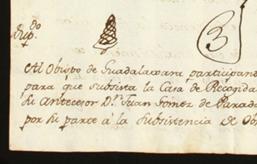 Dup.do
3
Al Obispo de Guadalaxara participand
para que subsista la Casa de Recogida
su Antecesor Dn. Juan Gomez de Parada
por su parte à la Subsistencia de Ob